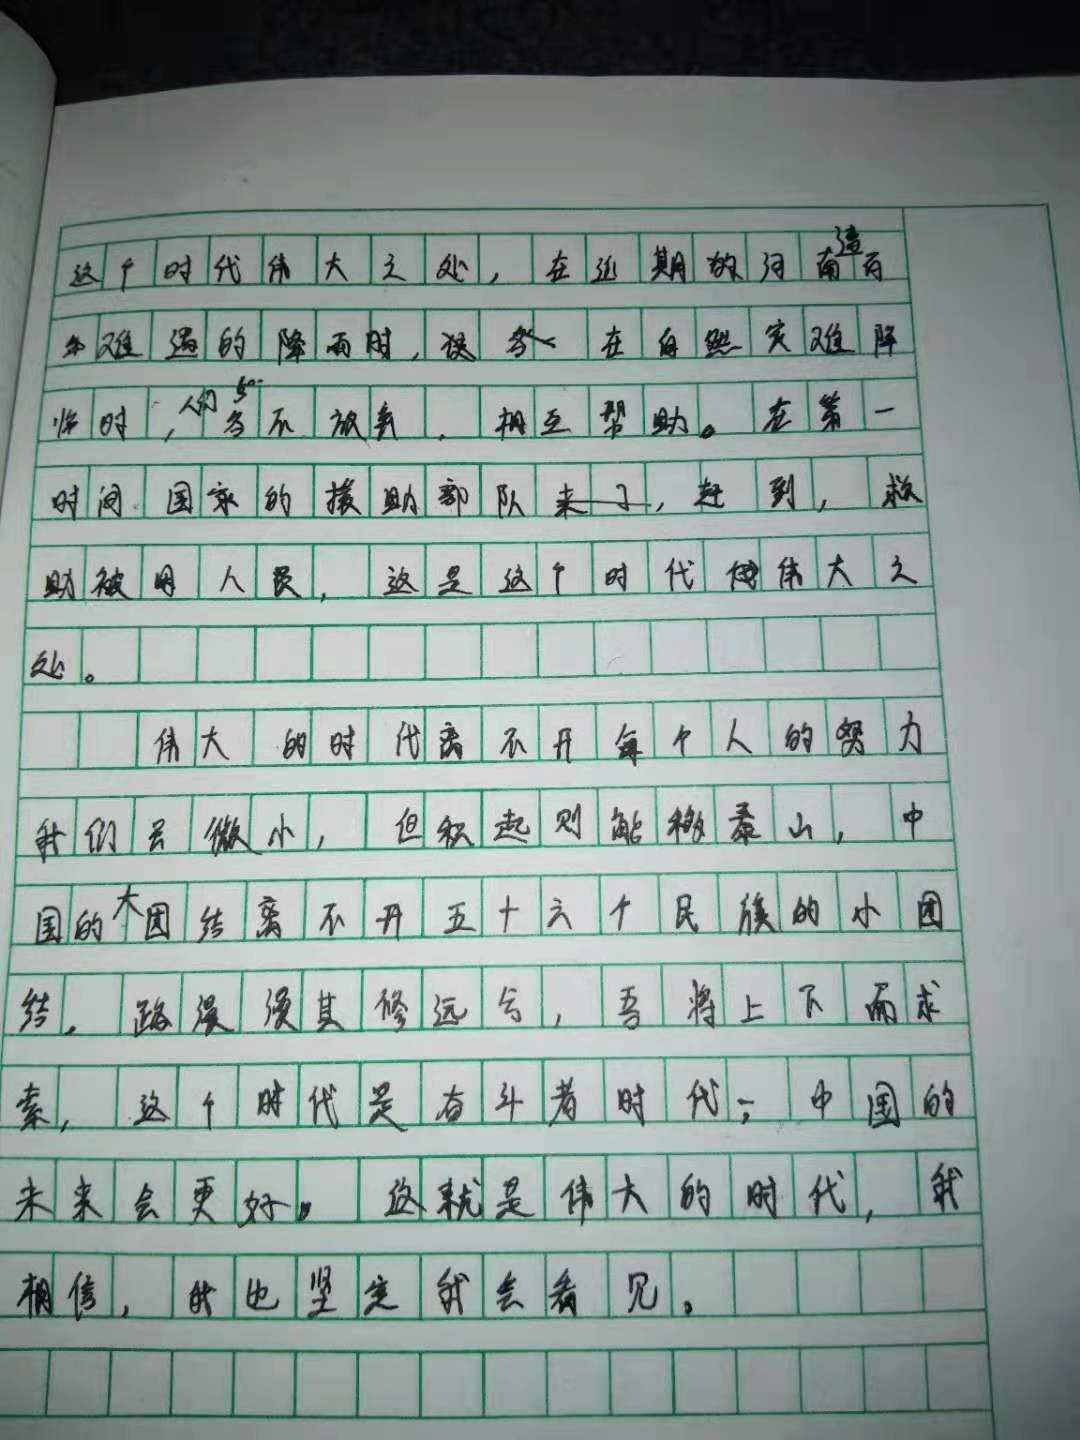 这个时代伟大之处，在近期的河南遭百
年难遇的降雨时，在自然灾难降
临时，人们不放弃，相互帮助。在第一
时间国家的援助部队赶到，救
助被困人员，这是这个时代伟大之
处。
伟大的时代离不开每个人的努力
我们虽微小，但积起则能移泰山，中
国的大团结离不开五十六个民族的小团
结，路漫漫其修远兮，吾将上下而求
索，这个时代是奋斗者时代；中国的
未来会更好。这就是伟大的时代，我
相信，我也坚定我会看见。